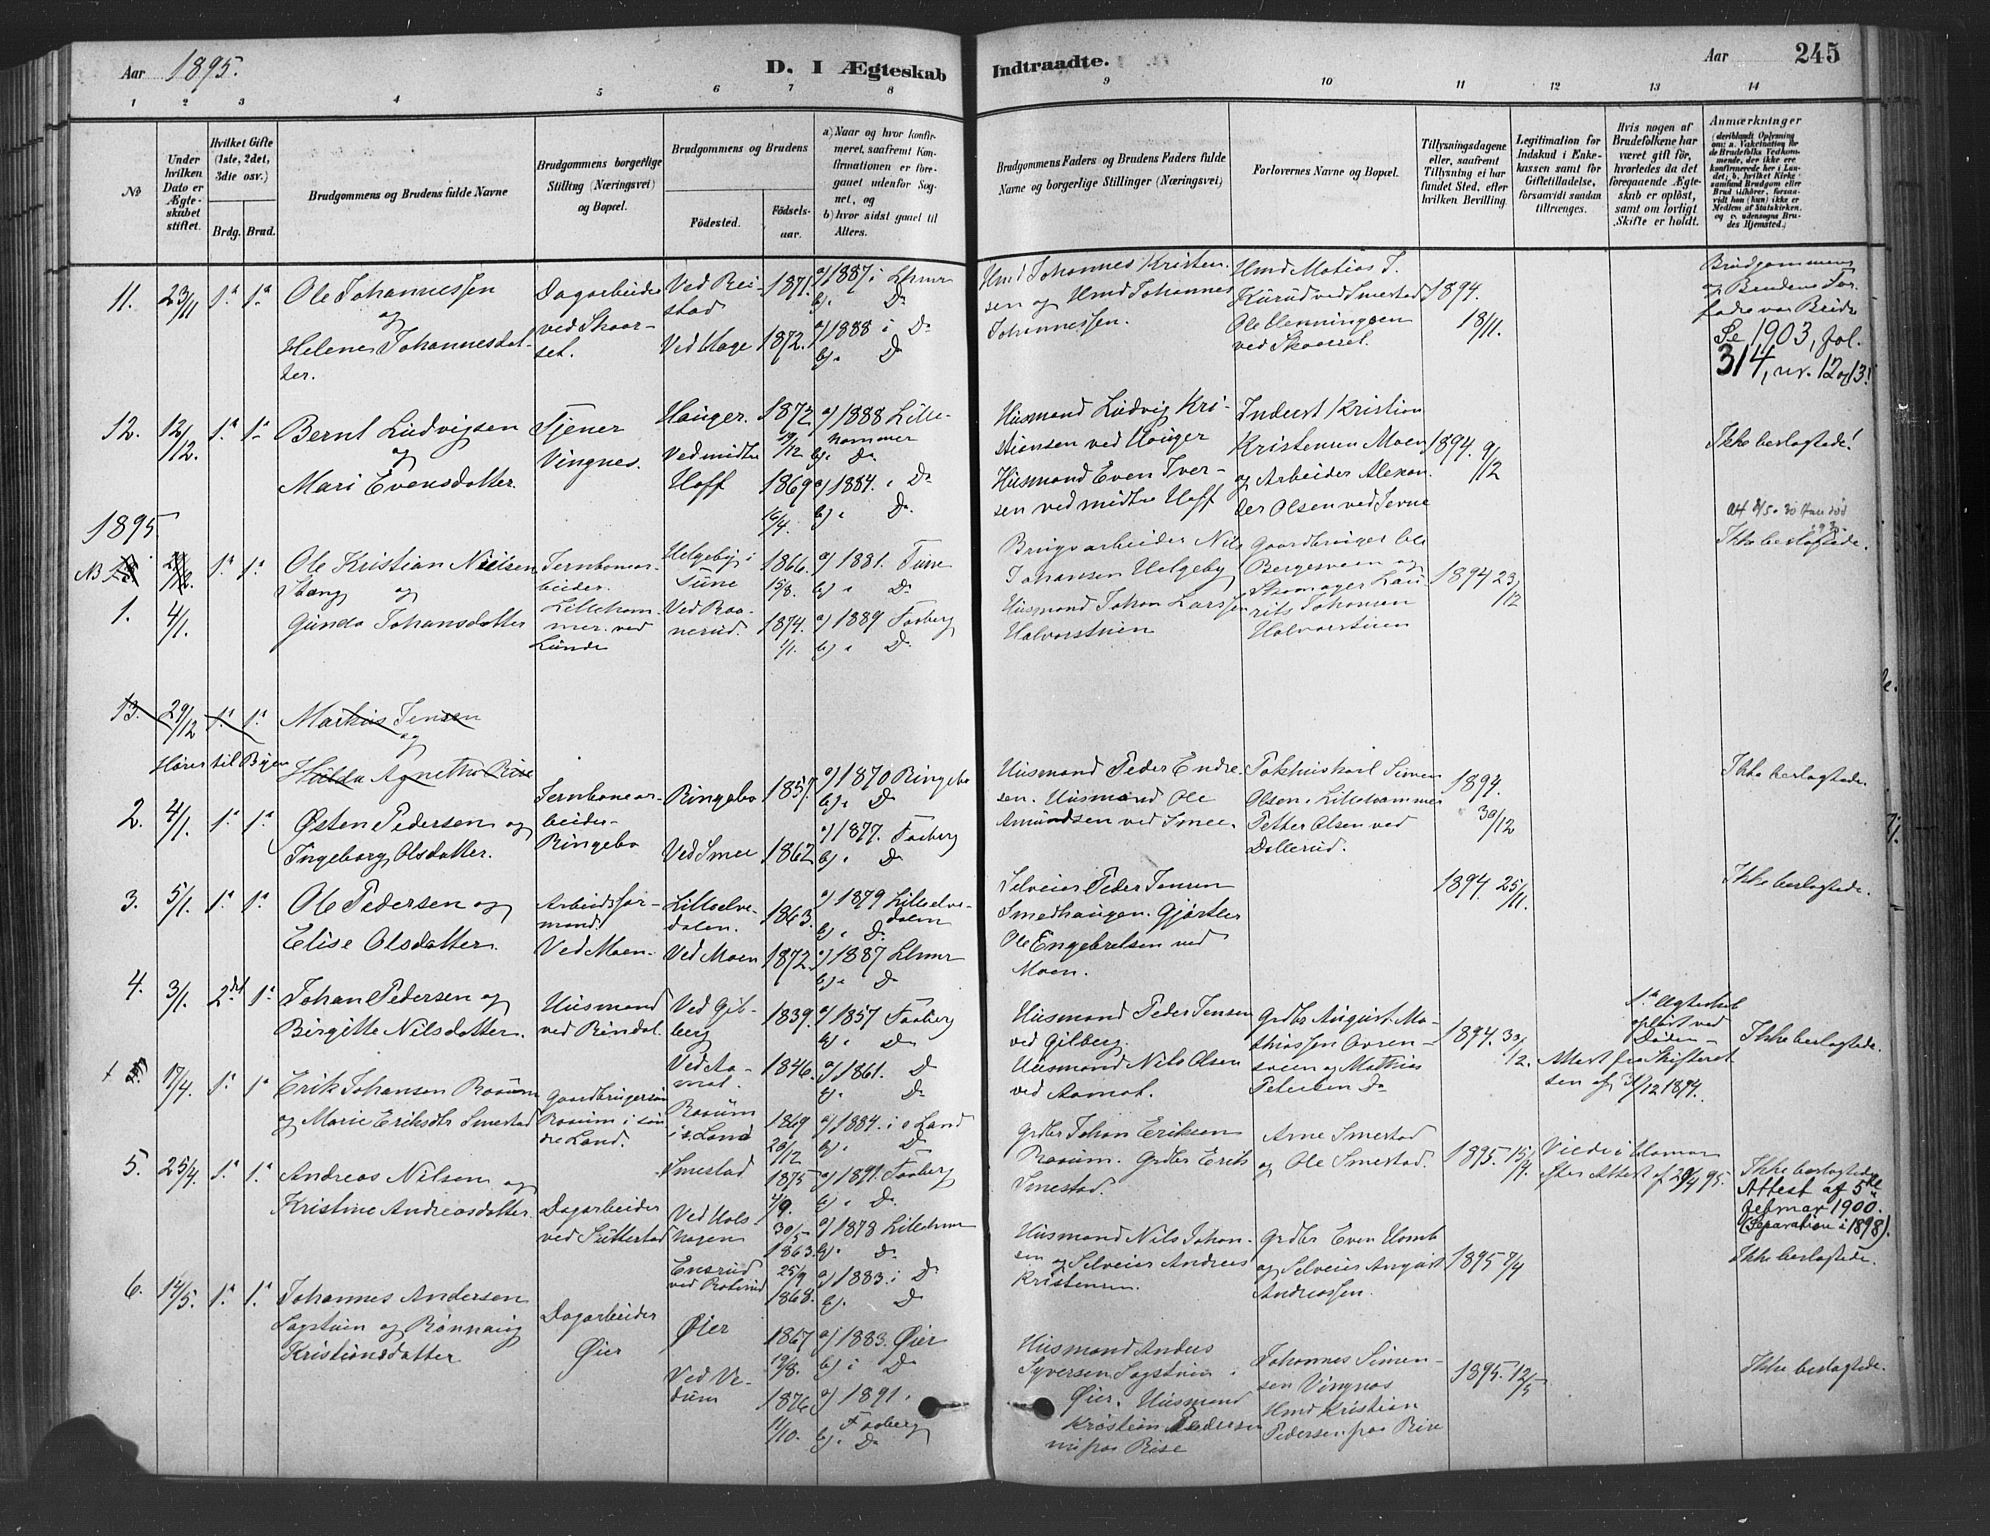 Aar 1895.
D. I Ægteskab Indtraadte.
Aar 245
1 2 3 4 5 6 7 8 9 10 11 12 13 14
No
Under hvilken Dato er Ægteskabet stiftet.
Hvilket Gifte (1ste, 2det, 3die osv.)
Brdg. Brud.
Brudgommens og Brudens fulde Navne
Brudgommens borgerlige Stilling (Næringsvei) og Bopæl.
Brudgommens og Brudens
Fødested.
Fødselsaar.
a) Naar og hvor konfirmeret, saafremt Konfirmationen er foregaaet udenfor Sognet, og
b) hvor sidst gaaet til Alters.
Brudgommens Faders og Brudens Faders fulde Navne og borgerlige Stillinger (Næringsvei)
Forlovernes Navne og Bopæl.
Tillysningsdagene eller, saafremt Tillysning ei har fundet Sted, efter hvilken Bevilling.
Legitimation for Indskud i Enkekassen samt for Giftetilladelse, forsaavidt saadan tiltrænges.
Hvis nogen af Brudefolkene har været gift før, hvorledes da det foregaaende Ægteskab er opløst, samt om lovligt Skifte er holdt.
Anmærkninger
11. 23/11 1ª 1ª
Ole Johannessen
og
Helene Johannesdatter.
Dagarbeider ved Skaarset.
Ved Reistad
Ved Hage
1871.
1872.
a) 1887 i Lhmer
b) " Do
a) 1888 i Do
b) " Do
Hmd Johannes Kristensen og Hmd Johannes Johannessen.
Hmd Matias J. Kurud ved Smestad
Ole Henningsen ved Skaarset.
1894. 18/11.
Brudgommens og Brudens
Se 1903, fol. 314, nr. 12 og 13!
12. 12/12. 1ª 1ª
Bernt Ludvigsen
og
Mari Evensdatter.
Tjener
Vingnes.
Hauger.
Ved midtre Hoff
1872 19/12
1869 16/4.
a) 1888 Lillehammer
b) " Do
a) 1884. i Do
b) " Do.
Husmand Ludvig Kristiansen ved Hauger
Husmand Even Iversen ved midtre Hoff
Inderst Kristian Kristensen Moen og Arbeider Alexander Olsen ved Jerne
1894. 9/12
Ikke beslægtede!
1895.
1. 4/1. 1ª 1ª
Ole Kristian Nielsen
Stang og
Gunda Johansdatter
Jernbanearbeider.
Lillehammer. ved Lunde
Helgeby i Tune
Ved Raanerud.
1866. 15/8.
1874. 1/1.
a) 1881. Tune
b) " Do
a) 1889 Faaberg
b) " Do
Brugsarbeider Nils Johansen Helgeby
Husmand Johan Larssen Halvorstuen
Gaardbruger Ole Bergesveen og Skomager Laurits Johansen Halvorstuen
1894 23/12
Ikke beslægtede.
13. 29/12 1ª 1ª
Markus Jensen
og
Hulda Agnethe Riise
Hører til Byen
2. 4/1. 1ª 1ª
Østen Pedersen og
Ingeborg Olsdatter.
Jernbanearbeider
Ringebo
Ringebo
Ved Smee
1857.
1862
a) 1870 Ringebo
b) " Do
a) 1877. Faaberg
b) " Do
Husmand Peder Endresen. Husmand Ole Amundsen ved Smee.
Pakhuskarl Simen Olsen. Lillehammer
Petter Olsen ved Dallerud.
1894. 30/12
Ikke beslægtede.
3. 5/1. 1ª 1ª
Ole Pedersen og
Elise Olsdatter.
Arbeidsformand.
Ved Moen.
Lilleelvedalen.
Ved Moen
1863.
1872.
a) 1879 Lilleelvedalen
b) " Do.
a) 1887 Lhmer
b) " Do
Selveier Peder Jensen Smedhaugen. Gjørtler Ole Engebretsen ved Moen.
1894. 25/11.
Ikke beslægtede.
4. 3/1. 2det 1ª
Johan Pedersen og
Birgitte Nilsdatter.
Husmand ved Rindal.
Ved Gilberg
Ved Aamot.
1839.
1846.
a) 1857 Faaberg
b) " Do
a) 1861. Do
b) " Do
Husmand Peder Jensen ved Gilberg.
Husmand Nils Olsen ved Aamot.
Grdbr August Mathiassen Ovrensveen og Mathias Petersen Do
1894. 30/12.
Attest fra Skifteretten af 3/12 1894.
1ª Ægteskab opløst ved Døden
Ikke beslægtede.
17/4 1ª 1ª
Erik Johansen Raaum
og Marie Eriksdtr Smestad
Gaardbrugersøn Raaum i søndre Land.
Raaum i s. Land
Smestad
1869 20/12
1875 4/9.
a) 1884. i s Land
b) " Do
a) 1891. Faaberg
b) " Do.
Grdbr Johan Eriksen Raaum. Grdbr Erik Smestad.
Arne Smestad og Ole Smestad.
1895. 15/4.
Viede i Hamar efter Attest af 20/4 95.
Ikke beslægtede
Attest af 5te februar 1900.
(Separation i 1898).
5. 25/4. 1ª 1ª
Andreas Nilsen og
Kristine Andreasdatter.
Dagarbeider ved Suttestad
Ved Holshagen
Ensrud ved Roterud
30/5 1863.
25/9 1868.
a) 1878 Lillehmer
b) " do.
a) 1883. i Do
b) " Do
Husmand Nils Johansen og Selveier Andreas Kristensen.
Grdbr Even Homb og Selveier August Andreassen.
1895 7/4
Ikke beslægtede.
6. 14/5. 1ª 1ª
Johannes Andersen
Sagstuen og Rønnaug
Kristiansdatter
Dagarbeider
Øier
Øier
Ved Vedum
1867 19/8.
1876 11/10.
a) 1883. Øier
b) i Do
a) 1891. i Faaberg
b) " Do
Husmand Anders Syversen Sagstuen i Øier. Husmand Kristian Pedersen paa Rise
Johannes Simensen Vingnes
Hmd Kristian Pedersen paa Rise
1895. 12/5
Ikke beslægtede.